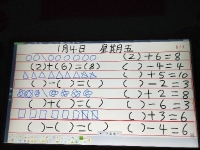 1月4日 星期五
(2)+6=8
(2)+(6)=(8) ( )-4=4
( )+5=10
( )-( )=( ) ( )-2=3
( )+2=8
( )+( )=( ) ( )-6=3
( )+3=6
( )-( )=( ) ( )-4=6